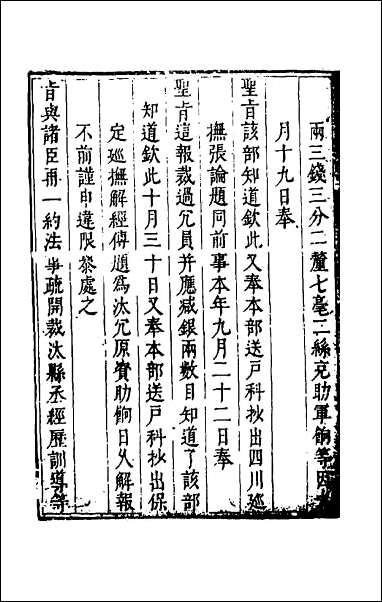 兩三錢三分二釐七毫二絲充助軍餉等因
月十九日奉
聖旨該部知道欽此又奉本部送戶科抄出四川巡
撫張論題同前事本年九月二十二日奉
聖旨這報裁過冗員并應减銀兩數目知道了該部
知道欽此十月三十日又奉本部送戶科抄出保
定巡撫解經傳題爲汰冗原資助餉日久解報
不前謹申違限叅處之
旨與諸臣再一約法事疏開裁汰縣丞經歷訓導等